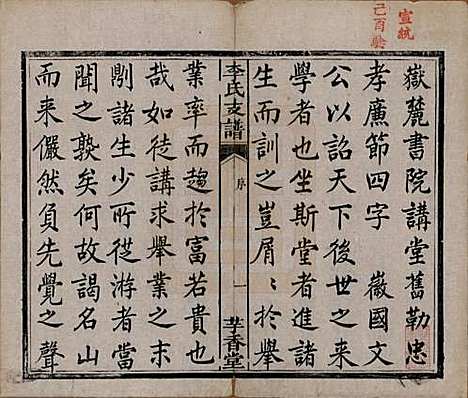 宣統
己酉
嶽麓書院講堂舊勒忠
孝廉節四字　徽國文
公以詔天下後世之来
學者也坐斯堂者進諸
生而訓之豈屑〻於舉
李氏支譜
序
一
芋香堂
業率而趨於富若貴也
哉如徒講求舉業之末
則諸生少所從游者當
聞之孰矣何故謁名山
而来儼然負先覺之聲